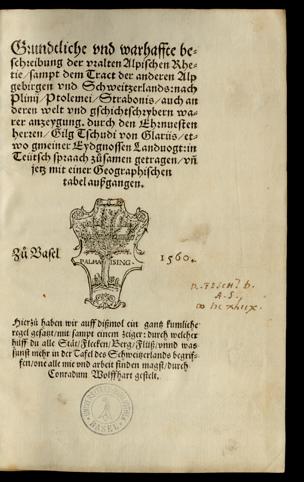 Grundtliche vnd warhaffte be-
schreibung der vralten Alpischen Rhe-
tie/ sampt dem Tract der anderen Alp
gebirgen vnd Schweitzerlands: nach
Plinij/ Ptolemei/ Strabonis/ auch an
deren welt vnd gschichtschrybern wa-
rer anzeygung, durch den Ehrnuesten
herren/ Gilg Tschudi von Glarus/ et-
wo gmeiner Eydgnossen Landuogt: in
Teütsch spraach zůsamen getragen/ vñ
jetz mit einer Geographischen
tabel außgangen.
PALMA ISING.
Zů Basel 1560.
Hierzů haben wir auff dißmol ein gantz kumliche
regel gesatzt/ mit sampt einem zeiger: durch welcher
hilff du alle Stät/ Flecken/ Berg/ Flüß/ vnnd was
sunst mehr in der Tafel des Schweitzerlands begrif-
fen/ one alle mie vnd arbeit finden magst/ durch
Conradum Wolffhart gestelt.
BASEL